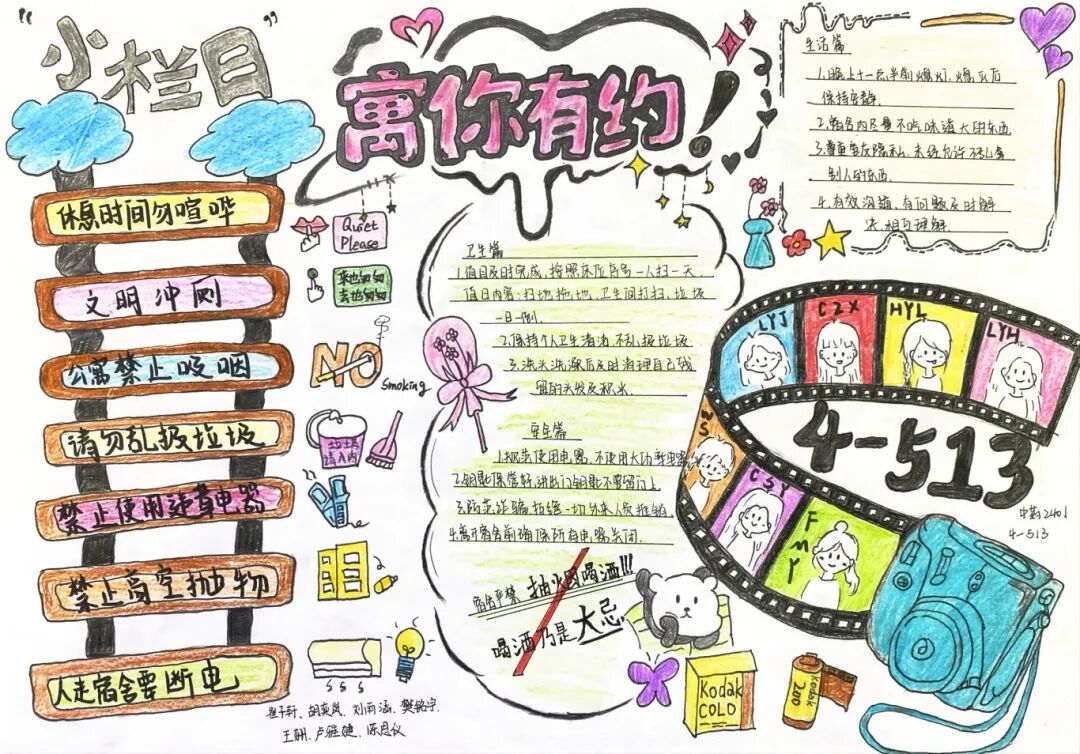 “小栏目”
寓你有约！
休息时间勿喧哗
文明冲厕
公寓禁止吸烟
请勿乱扔垃圾
禁止使用违章电器
禁止高空抛物
人走宿舍要断电
Quiet
Please
来也匆匆
去也匆匆
NO
Smoking
垃圾
请入内
卫生篇
1.值日及时完成，按照床位序号一人扫一天，
值日内容：扫地、拖地、卫生间打扫、垃圾
一日一倒.
2.保持个人卫生清洁，不乱扔垃圾
3.洗头洗澡后及时清理自己残
留的头发及积水.
安全篇
1.规范使用电器，不使用大功率电器
2.钥匙保管好，进出门钥匙不要留门上
3.防范诈骗，拒绝一切外来人员推销
4.离开宿舍前确保所有电器关闭.
宿舍严禁 抽烟喝酒!!!
喝酒乃是大忌
生活篇
1.晚上十一点半前熄灯，熄灯后
保持安静.
2.宿舍内尽量不吃味道大的东西
3.尊重室友隐私，未经允许不乱拿
别人的东西.
4.有效沟通，有问题及时解
决，相互理解.
LYJ
CZX
HYL
LYH
WS
CSY
FMY
4-513
中药2401
4-513
Kodak
GOLD
Kodak
200
刘雨涵、樊铭宇.
王朝、卢雅婕、陈思仪